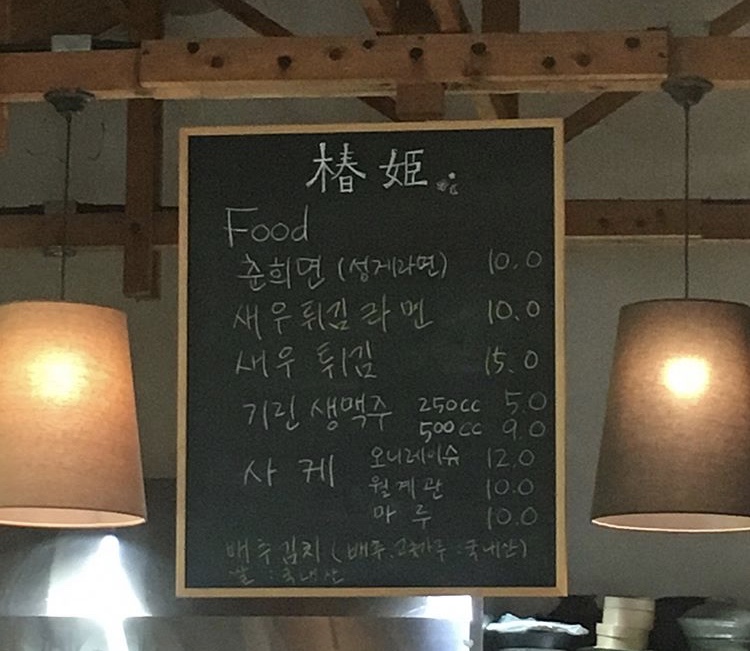 椿姫
Food
춘희면 (성게라면) 10.0
새우튀김라멘 10.0
새우 튀김 15.0
기린 생맥주 250cc 5.0
500cc 9.0
사케 오니레이슈 12.0
월계관 10.0
마루 10.0
배추김치 (배추.고춧가루:국내산)
쌀:국내산